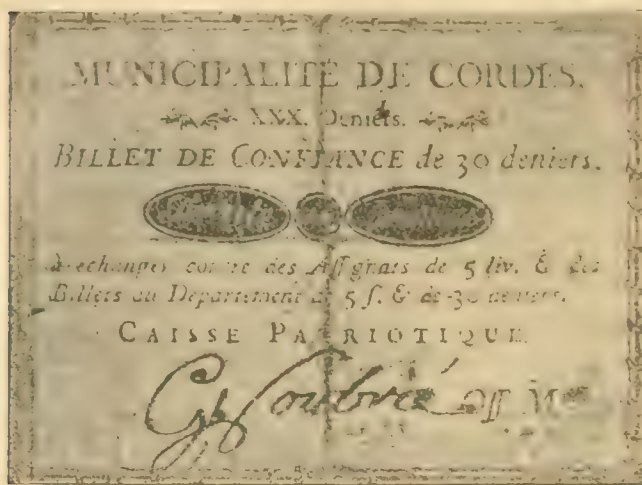 MUNICIPALITÉ DE CORDES.
XXX. Deniers.
BILLET DE CONFIANCE de 30 deniers.
à échanger contre des Assignats de 5 liv. & des
Billets du Département de 5 s. & de 30 deniers.
CAISSE PATRIOTIQUE
Off. M